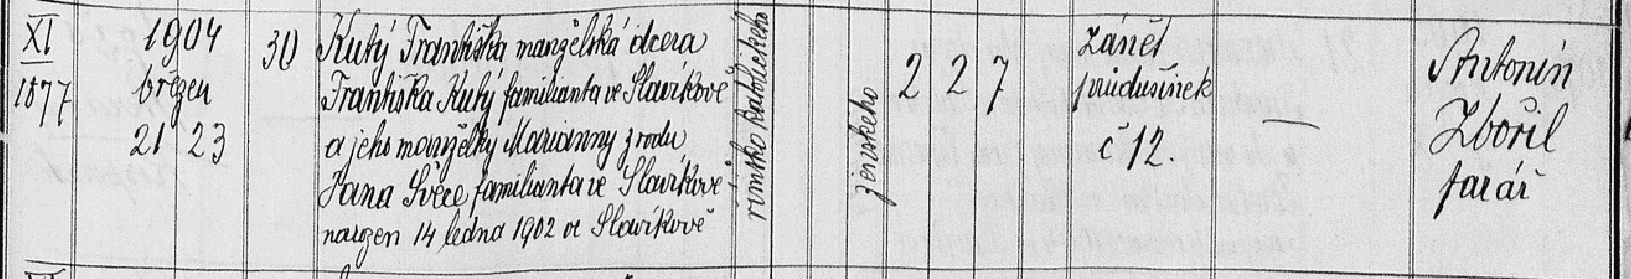 XI
1877
1904
březen
21 23
30
Kutý Františka manželská dcera
Františka Kutý familianta ve Slavíkově
a jeho manželky Marianny z rodu
Jana Švec familianta ve Slavíkově
narozen 14 ledna 1902 ve Slavíkově
římsko katolického
ženského
2 2 7
zánět
průdušinek
č 12.
—
Antonín
Zbořil
farář
XI